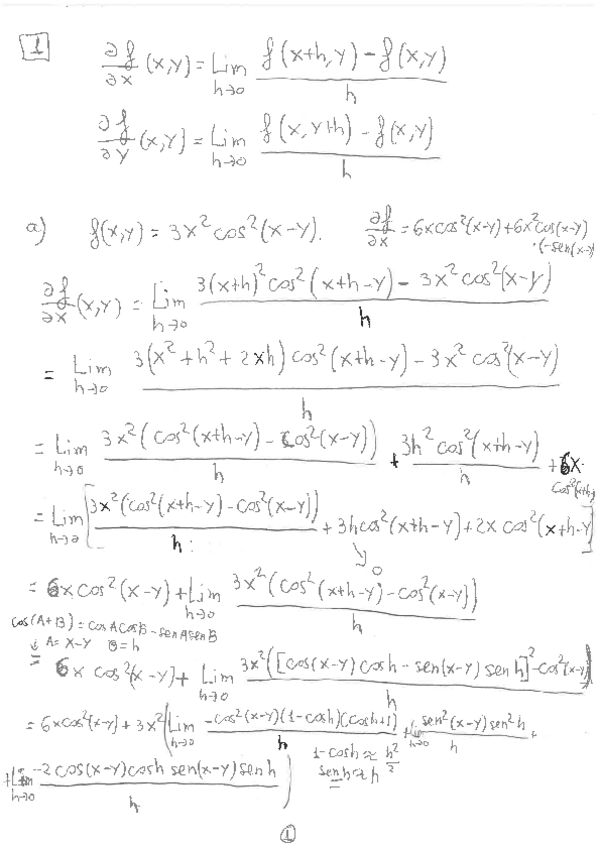 1
∂f/∂x (x,y) = Lim h→0 (f(x+h,y) - f(x,y))/h
∂f/∂y (x,y) = Lim h→0 (f(x,y+h) - f(x,y))/h
a) f(x,y) = 3x² cos²(x-y). ∂f/∂x = 6x cos²(x-y) + 6x² cos(x-y) · (-sen(x-y)
∂f/∂x (x,y) = Lim h→0 (3(x+h)² cos²(x+h-y) - 3x² cos²(x-y))/h
= Lim h→0 (3(x²+h²+2xh) cos²(x+h-y) - 3x² cos²(x-y))/h
= Lim h→0 (3x²(cos²(x+h-y) - cos²(x-y)))/h + (3h² cos²(x+h-y))/h + 6x· cos²(x+h-y)
= Lim h→0 [(3x²(cos²(x+h-y) - cos²(x-y)))/h + 3h cos²(x+h-y) + 2x cos²(x+h-y)]
↘ 0
= 6x cos²(x-y) + Lim h→0 (3x²(cos²(x+h-y) - cos²(x-y)))/h
cos(A+B) = cosA cosB - senA senB
↓ A = x-y B = h
= 6x cos²(x-y) + Lim h→0 (3x²([cos(x-y) cosh - sen(x-y) senh]² - cos²(x-y)))/h
= 6x cos²(x-y) + 3x² (Lim h→0 (-cos²(x-y)(1-cosh)(cosh+1))/h + Lim h→0 (sen²(x-y) sen²h)/h +
1-cosh ≈ h²/2
senh ≈ h
+ Lim h→0 (-2 cos(x-y) cosh sen(x-y) senh)/h )
1